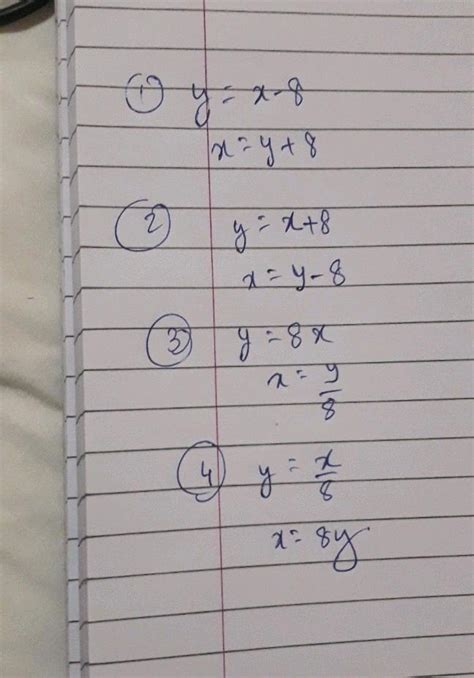 ① y = x-8
x = y+8
② y = x+8
x = y-8
③ y = 8x
x = y/8
④ y = x/8
x = 8y